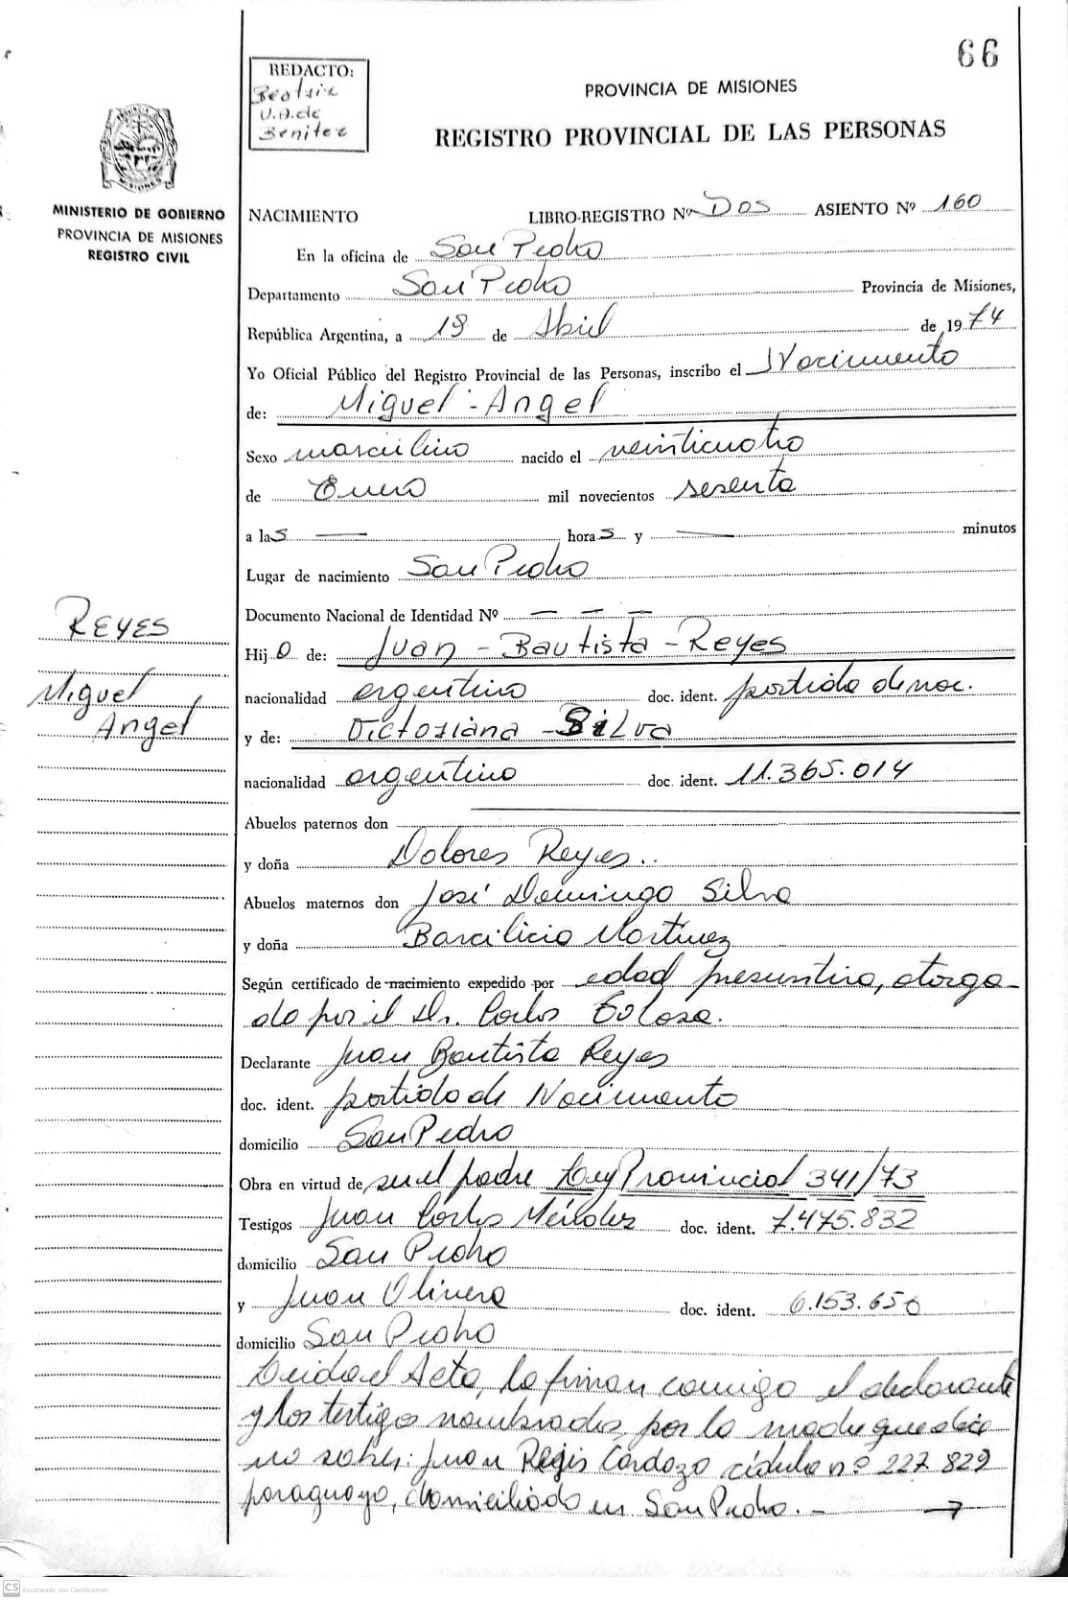 66
REDACTO:
Beatriz
V.A. de
Benitez
PROVINCIA DE MISIONES
REGISTRO PROVINCIAL DE LAS PERSONAS
MISIONES
MINISTERIO DE GOBIERNO
PROVINCIA DE MISIONES
REGISTRO CIVIL
NACIMIENTO LIBRO-REGISTRO Nº Dos ASIENTO Nº 160
En la oficina de San Pedro
Departamento San Pedro Provincia de Misiones,
República Argentina, a 19 de Abril de 1974
Yo Oficial Público del Registro Provincial de las Personas, inscribo el Nacimiento
de: Miguel - Angel
Sexo masculino nacido el veinticuatro
de Enero mil novecientos sesenta
a las — horas y — minutos
Lugar de nacimiento San Pedro
Documento Nacional de Identidad Nº — — —
REYES
Miguel
Angel
Hijo de: Juan - Bautista - Reyes
nacionalidad argentino doc. ident. partida de nac.
y de: Victoriana - Silva
nacionalidad argentino doc. ident. 11.365.014
Abuelos paternos don
y doña Dolores Reyes..
Abuelos maternos don José Domingo Silva
y doña Barcilicia Martinez
Según certificado de nacimiento expedido por edad presuntiva, otorga-
do por el Dr. Carlos
Declarante Juan Bautista Reyes
doc. ident. partida de Nacimiento
domicilio San Pedro
Obra en virtud de ser el padre Ley Provincial 341/73
Testigos Juan Carlos Méndez doc. ident. 7.475.832
domicilio San Pedro
y Juan Olivera doc. ident. 6.153.650
domicilio San Pedro
Leida el Acta, la firman conmigo el declarante
y los testigos nombrados, por la madre que dice
no saber: Juan Regis Cardozo cédula nº 227.829
paraguayo, domiciliado en San Pedro. —
CS Escaneado con CamScanner